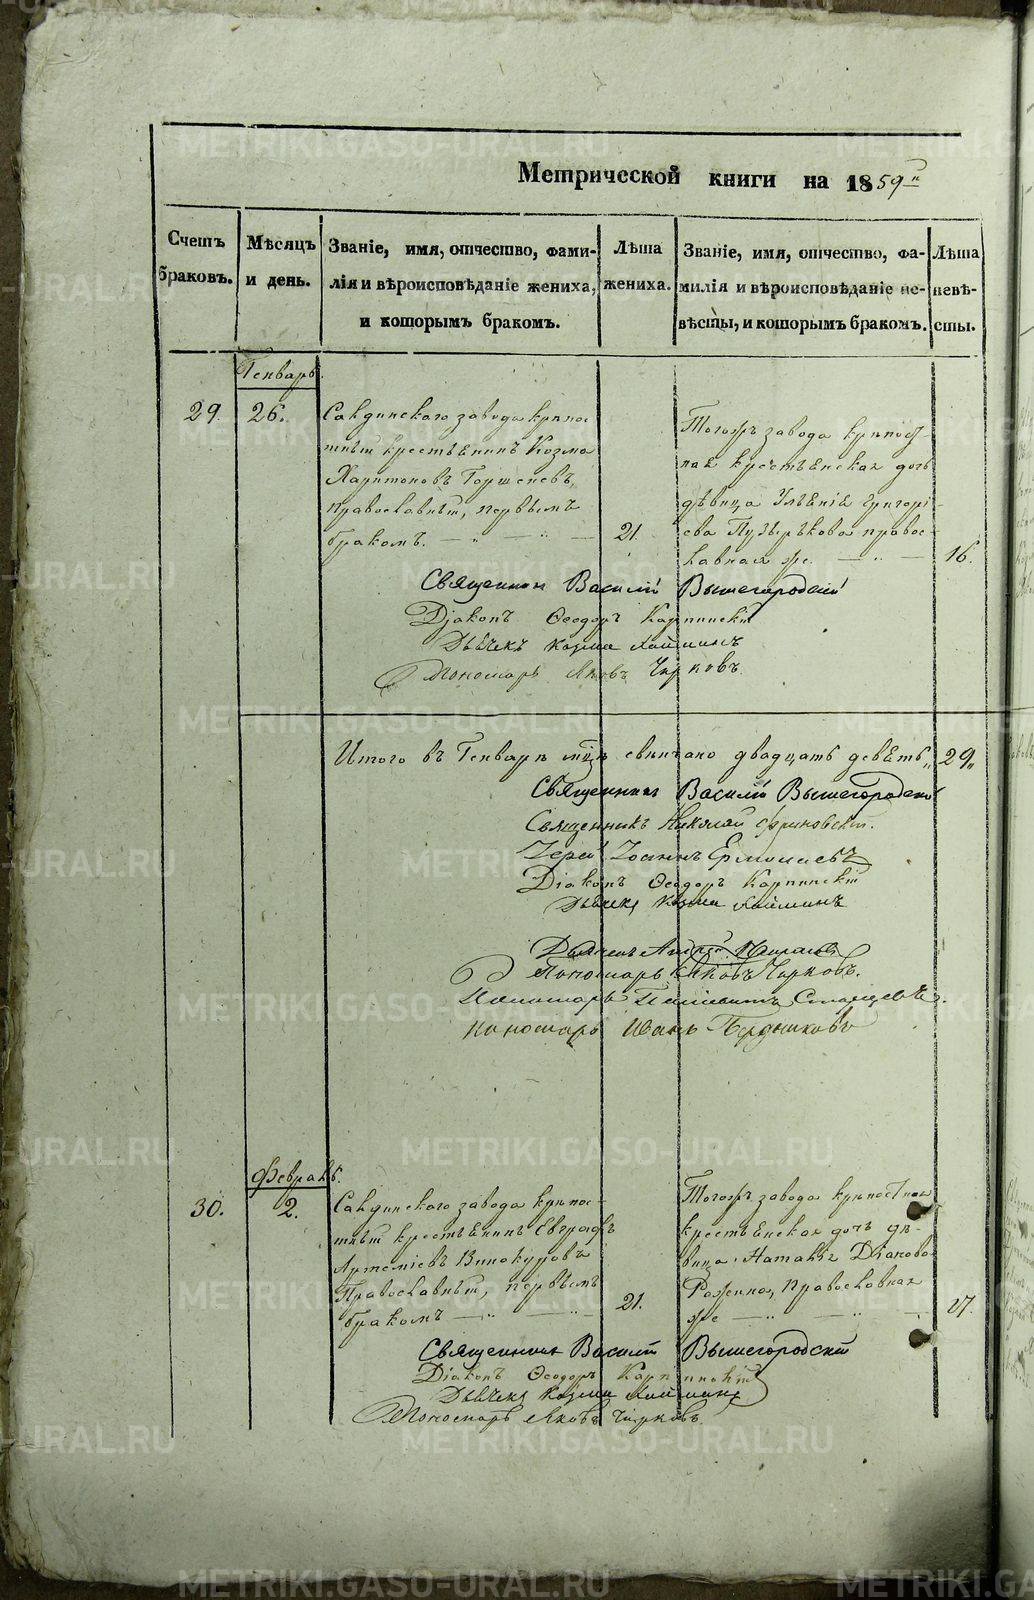 Метрической книги на 1859 г̃
Счетъ браковъ.
Мѣсяцъ и день.
Званіе, имя, отчество, фами-
лія и вѣроисповѣданіе жениха,
и которымъ бракомъ.
Лѣта
жениха.
Званіе, имя, отчество, фа-
милія и вѣроисповѣданіе не-
вѣсты, и которымъ бракомъ.
Лѣта
невѣ-
сты.
Генварь.
29.
26.
Салдинскаго завода крѣпос
тный крестьянинъ Козма
Харитоновъ Горшеневъ,
православный, первымъ
бракомъ.
21.
Тогожъ завода крѣпост-
ная крестьянская дочь
дѣвица Ульянія Григорі-
ева Пузырькова правос-
лавная же
16.
Священникъ Василій Вышегородскій
Діаконъ Ѳеодоръ Карпинскій
Дьячекъ Козма
Пономарь Яковъ Чирковъ
Итого въ Генварѣ мцѣ свѣнчано двадцать девять „29„
Священникъ Василій Вышегородскій
Священникъ Николай
Іерей Іоаннъ Ермолаевъ
Діаконъ Ѳеодоръ Карпинскій
Дьячекъ Козма
Дьячекъ Андрей
Пономарь Яковъ Чирковъ.
Пономарь Старцевъ.
Пономарь Иванъ Бердниковъ
Февраль.
30.
2.
Салдинскаго завода крѣпос-
тный крестьянинъ Евграфъ
Артеміевъ Винокуровъ
Православный, первымъ
бракомъ
21.
Тогожъ завода крѣпостная
крестьянская дочь дѣ-
вица Наталія Діакова
Рожена, Православная
же
17.
Священникъ Василій Вышегородскій
Діаконъ Ѳеодоръ Карпинскій
Дьячекъ Козма
Пономарь Яковъ Чирковъ
METRIKI.GASO-URAL.RU